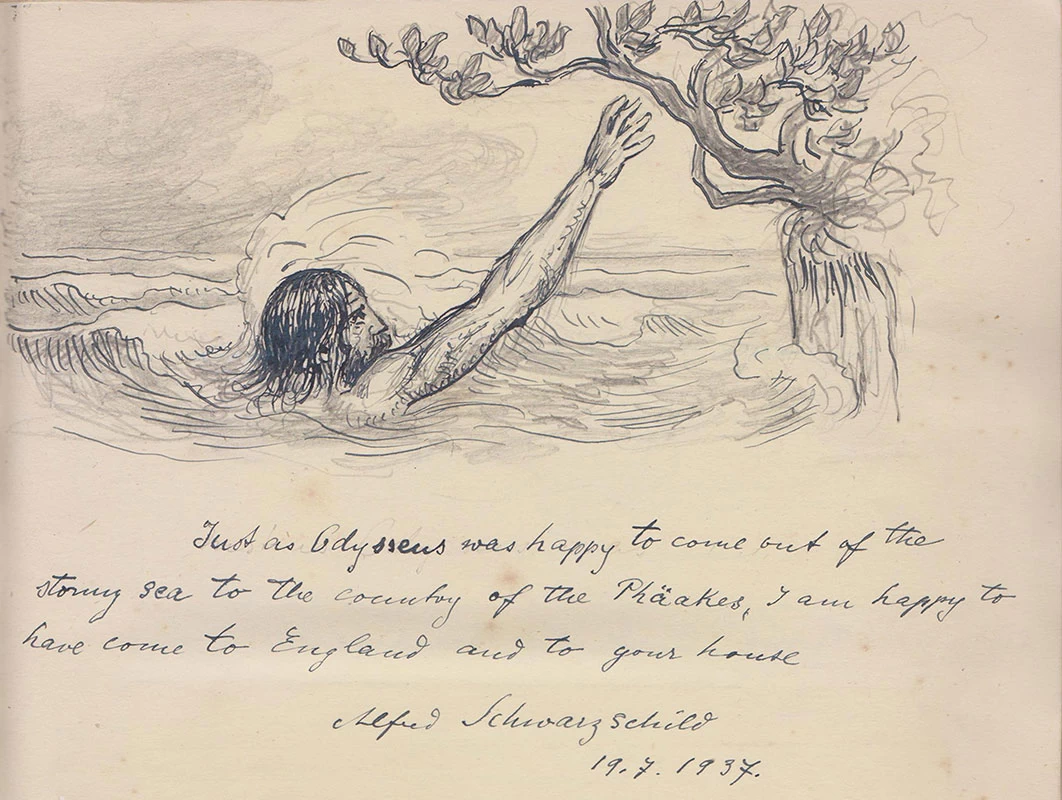 Just as Odysseus was happy to come out of the
stormy sea to the country of the Phäakes, I am happy to
have come to England and to your house
Alfred Schwarzschild
19.7.1937.